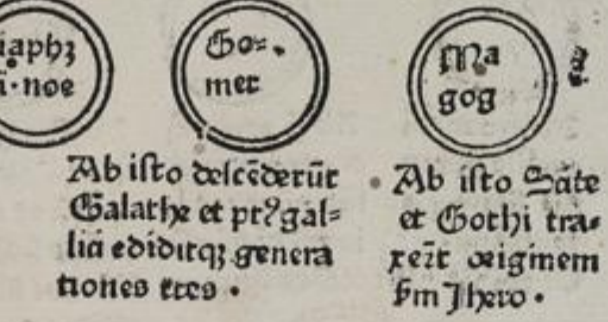 iaphꝫ
i·noe
Go⸗
mer
Ma
gog
Ab isto descēderūt
Galathe et ptꝰ gal⸗
lia ediditqꝫ genera
tiones tres .
Ab isto
et Gothi tra⸗
xerūt originem
ẜm Jhero .